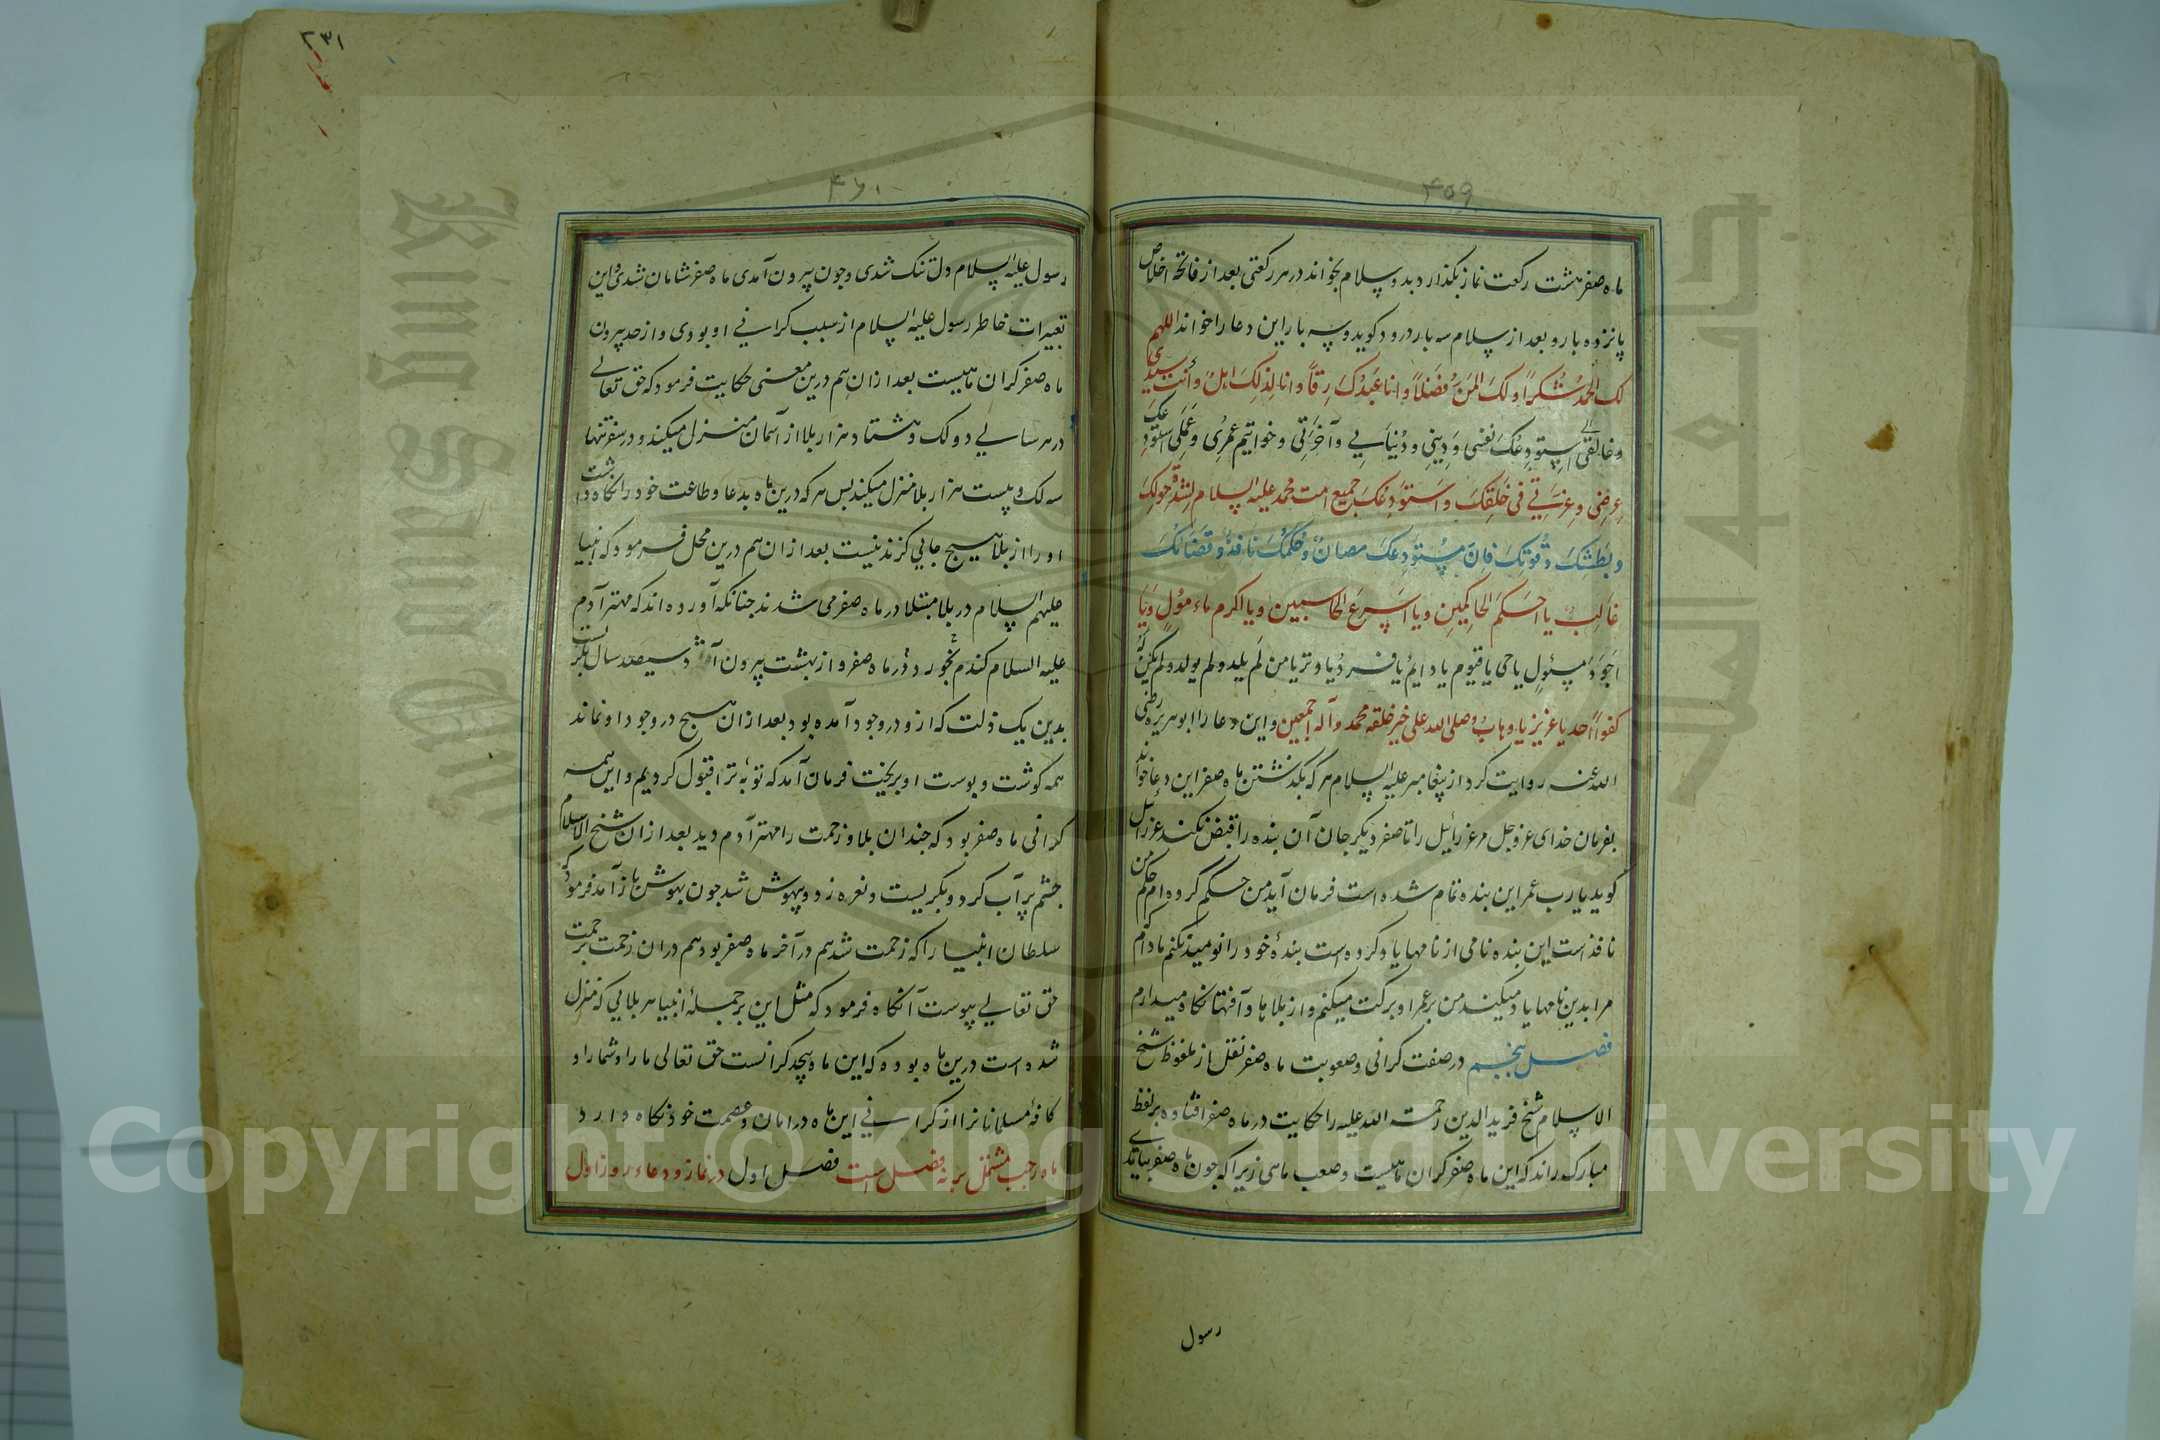 ۴۵۹
ماه صفر هشت رکعت نماز بکذارد بدو سلام بخواند در هر رکعتی بعد از فاتحه اخلاص
پانزده بار و بعد از سلام سه بار درود کوید و سه بار این دعا را خواند اللهم
لک الحمد شکرًا و لک المنّ فضلاً و انا عبدک رقاً و انا لذلک اهل و أنت سیدی
و خالقی استودعک نفسی و دینی و دنیایی و آخرتی و خواتیم عمری و عملی استودعک
عرضی و عزتی فی خلقک و استودعک جمیع امت محمد علیه السلام لشدة حولک
و بطشک و قوتک فان مستودعک مصان و حکمک نافذ و قضائک
غالب یا احکم الحاکمین و یا اسرع الحاسبین و یا اکرم ماءمول و یا
اجود مسئول یا حی یا قیوم یا دایم یا فرد یا وتر یا من لم یلد و لم یولد و لم یکن له
کفواً احد یا عزیز یا وهاب و صلی الله علی خیر خلقه محمد و آله اجمعین و این دعا را ابو هریره رضی
الله عنه روایت کرد از پیغامبر علیه السلام هر که بکذشتن ماه صفر این دعا خواند
بفرمان خدای عز و جل مر عزرائیل را تا صفر دیکر جان آن بنده را قبض نکند عزرائیل
کوید یا رب عمر این بنده تمام شده است فرمان آید من حکم کرده ام حکم من
نافذ است این بنده نامی از نامها یاد کرده است بندهٔ خود را نومید نکنم مادام
مرا بدین نامها یاد میکند من بر عمر او برکت میکنم و از بلاها و آفتها نکاه میدارم
فصل پنجم در صفت کرانی و صعوبت ماه صفر نقل از ملفوظ شیخ
الاسلام شیخ فرید الدین رحمة الله علیه را حکایت در ماه صفر افتاده بر لفظ
مبارک راند که این ماه صفر کران ماهیست و صعب ماهی زیرا که چون ماه صفر بیامدی
رسول
۲۳۱
۴۶۰
رسول علیه السلام دل تنک شدی و چون بیرون آمدی ماه صفر شادمان شدی و این
تغییرات خاطر رسول علیه السلام از سبب کرانی او بودی و از حد بیرون
ماه صفر کران ماهیست بعد ازان هم درین معنی حکایت فرمود که حق تعالی
در هر سالی ده لک و هشتاد هزار بلا از آسمان منزل میکند و در صفر تنها
سه لک و بیست هزار بلا منزل میکند بس هر که درین ماه بدعا و طاعت خود را نکاه داشت
او را از بلا هیچ جایی کزند نیست بعد ازان هم درین محل فرمود که انبیا
علیهم السلام در بلا مبتلا در ماه صفر می شدند جنانکه آورده اند که مهتر آدم
علیه السلام کندم بخورد در ماه صفر و از بهشت بیرون آمد سیصد سال بکریست
بدین یک ذلت که ازو در وجود آمده بود بعد ازان هیچ در وجود او نماند
همه کوشت و بوست او بریخت فرمان آمد که توبه ترا قبول کردیم و این همه
کرانی ماه صفر بود که جندان بلا و زحمت را مهتر آدم دید بعد ازان شیخ الاسلام
چشم پر آب کرد و بکریست و نعره زد و بیهوش شد چون بهوش باز آمد فرمود که
سلطان انبیا را که زحمت شد هم در آخر ماه صفر بود هم در ان زحمت برحمت
حق تعالی بپیوست آنکاه فرمود که مثل این بر جمله انبیا هر بلایی که منزل
شده است درین ماه بوده که این ماه بیحد کرانست حق تعالی ما را و شما را و
کافهٔ مسلمانانرا از کرانی این ماه در امان و عصمت خود نکاه دارد
ماه رجب مشتمل بر نه فصل است فصل اول در نماز و دعاء روز اول
Copyright © King Saud University
King Saud University